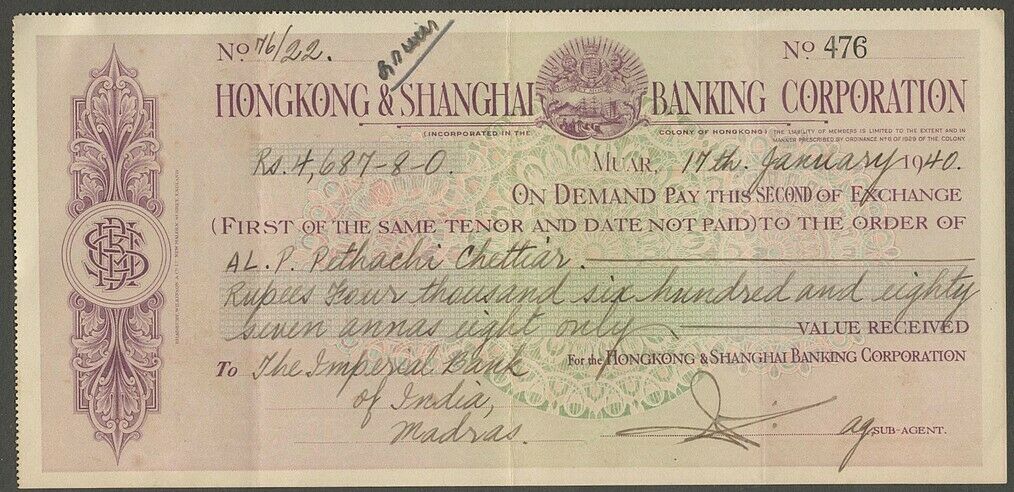 No. 76/22.
No 476
HONGKONG & SHANGHAI BANKING CORPORATION
(INCORPORATED IN THE COLONY OF HONGKONG) THE LIABILITY OF MEMBERS IS LIMITED TO THE EXTENT AND IN
MANNER PRESCRIBED BY ORDINANCE No 6 OF 1929 OF THE COLONY
Rs. 4,687-8-0. MUAR, 17th. January 1940.
ON DEMAND PAY THIS SECOND OF EXCHANGE
(FIRST OF THE SAME TENOR AND DATE NOT PAID) TO THE ORDER OF
AL. P. Pethachi Chettiar.
Rupees Four thousand six hundred and eighty
seven annas eight only VALUE RECEIVED
To The Imperial Bank For the HONGKONG & SHANGHAI BANKING CORPORATION
of India,
Madras.
ag. SUB-AGENT.